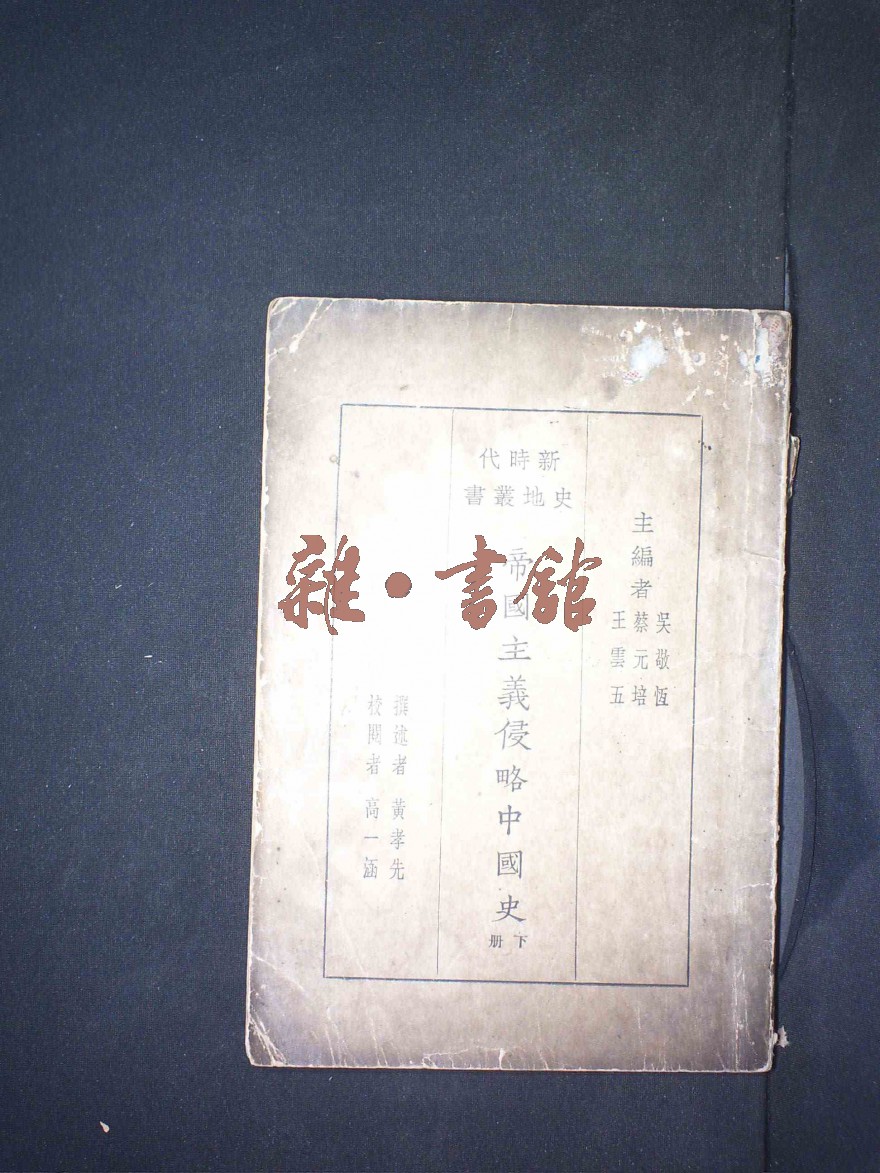 主編者
吳敬恆
蔡元培
王雲五
新時代
史地叢書
帝國主義侵略中國史
下册
撰述者 黃孝先
校閱者 高一涵
雜·書館